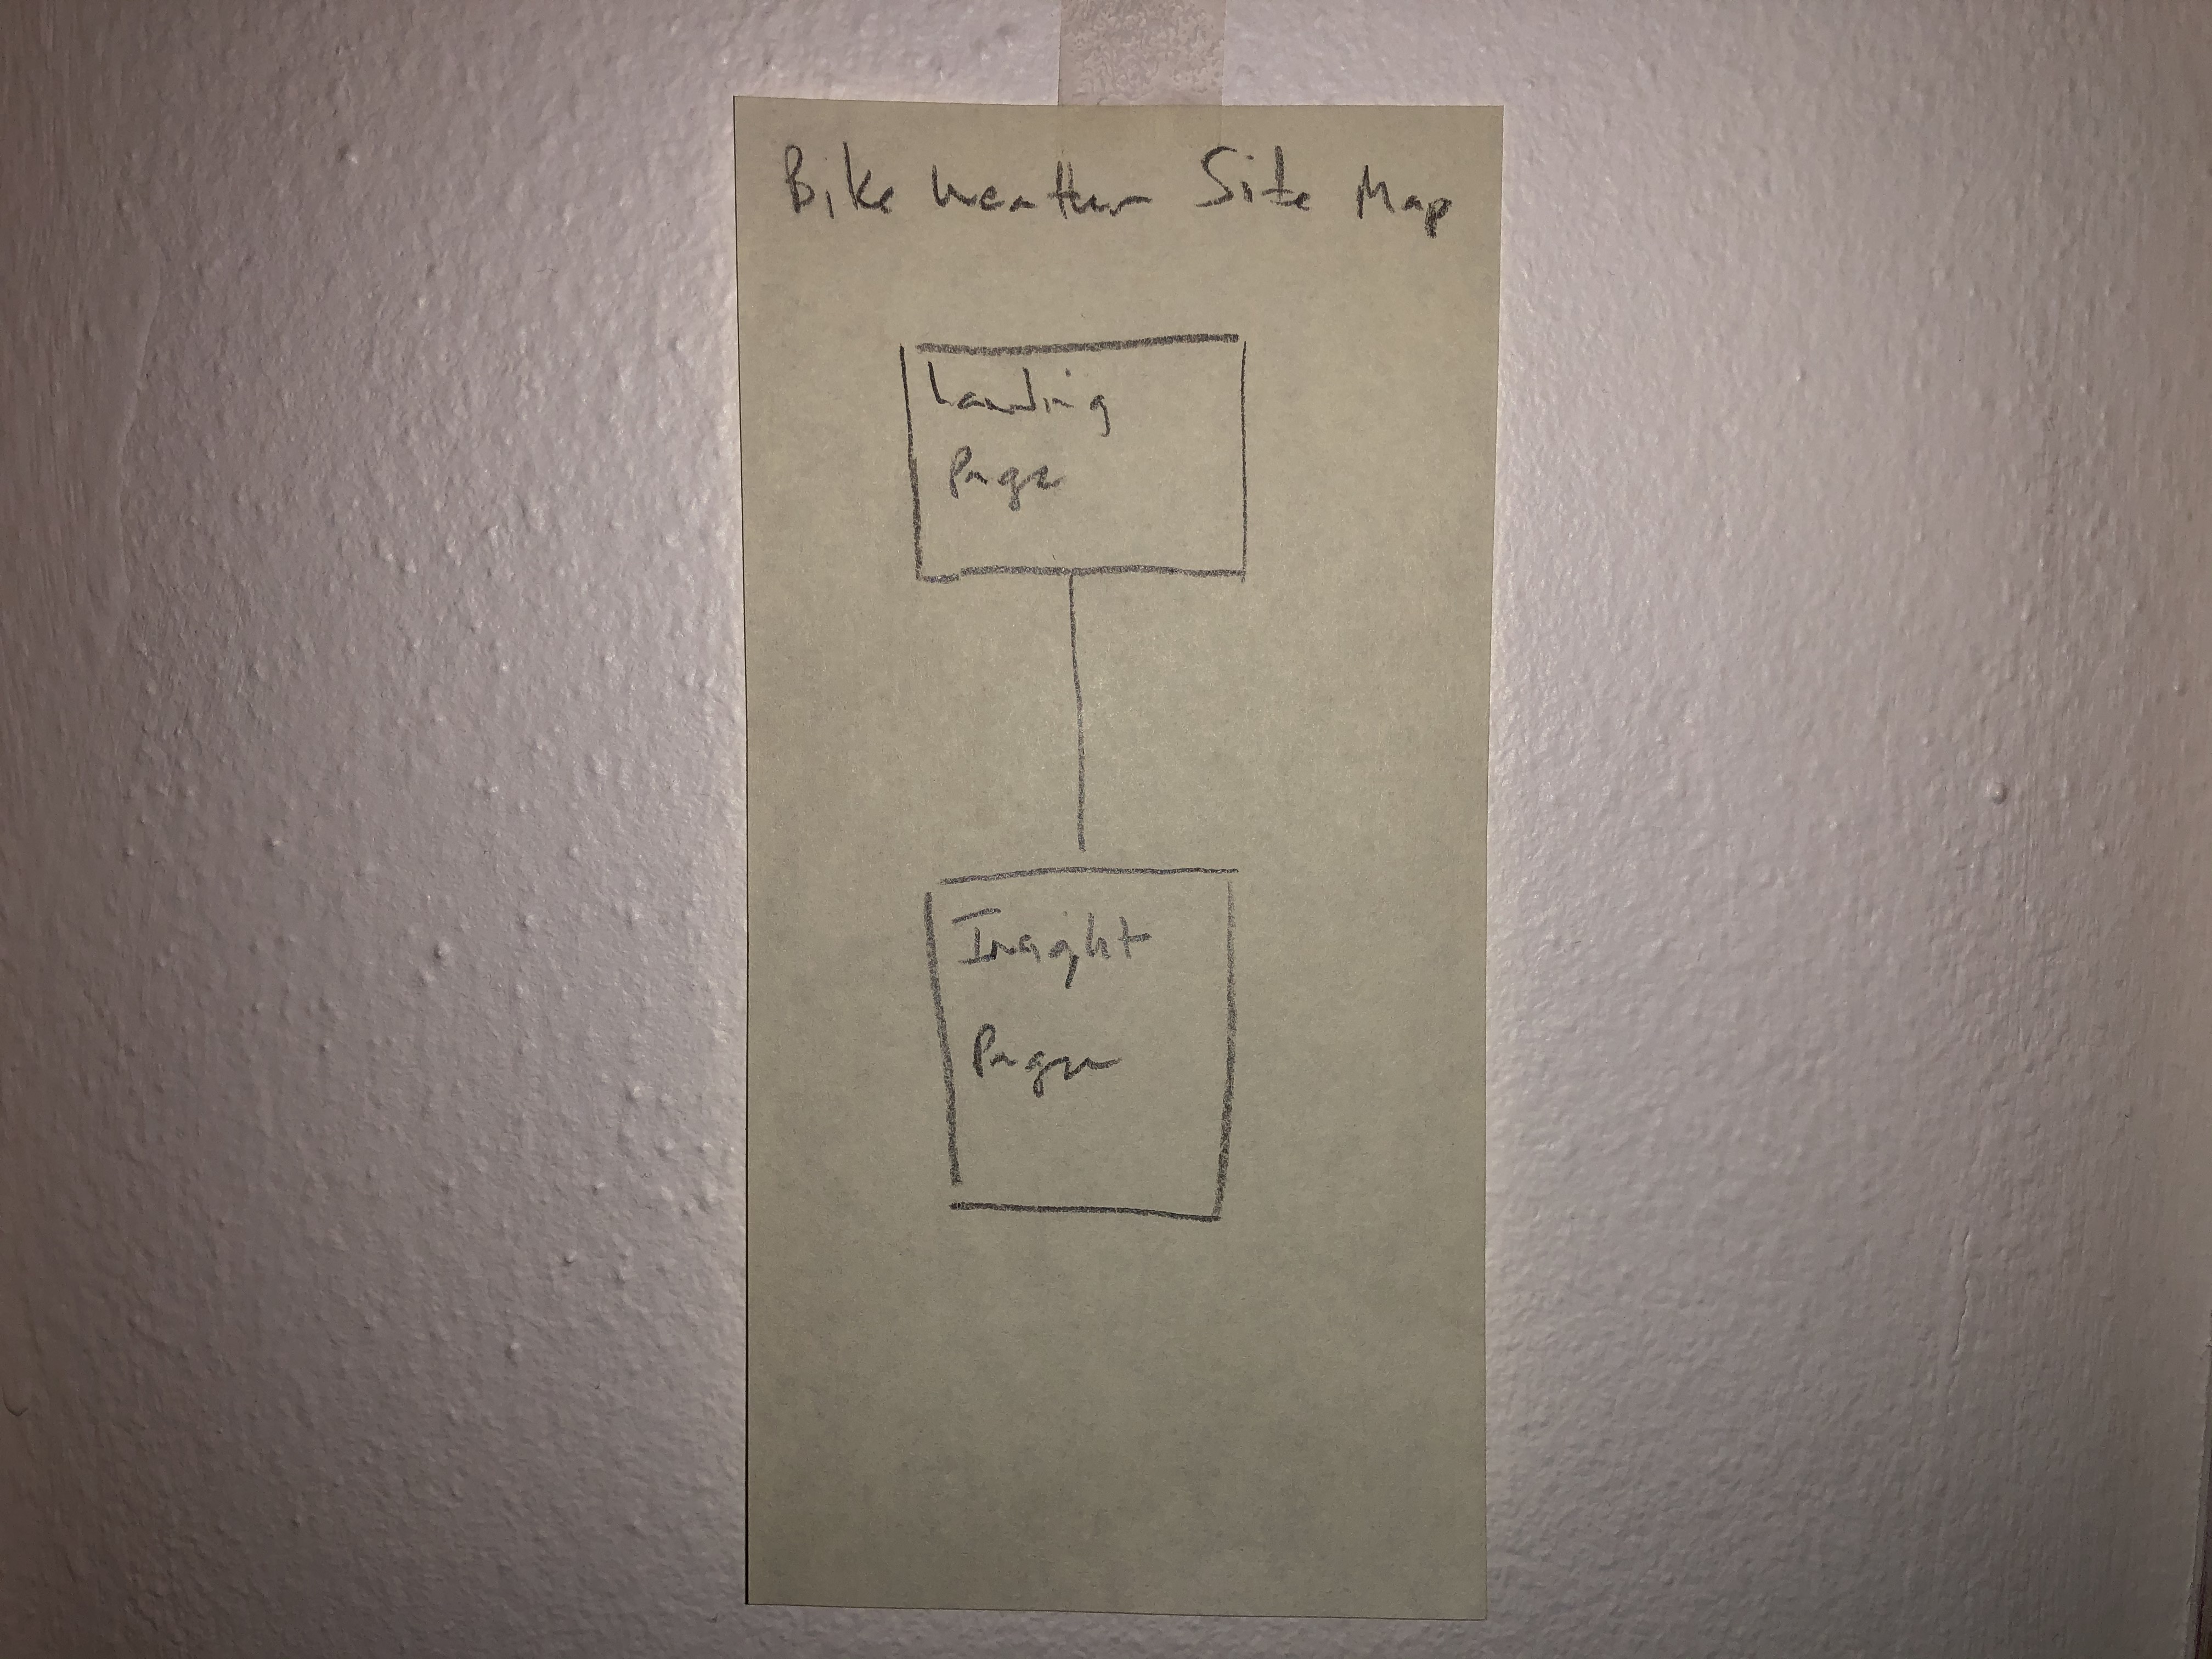 Bike Weather Site Map
Landing
Page
Insight
Page